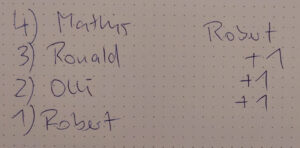 4) Mathis
3) Ronald
2) Olli
1) Robert
Robert
+1
+1
+1